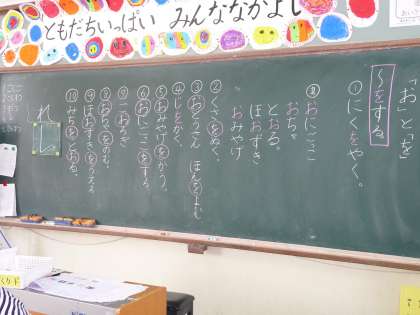 ともだちいっぱい みんななかよし
「お」と「を」
～をする。
①にくをやく。
⑧おにごっこ
おちゃ
とおる。
ほおずき
おみやげ
②くさをぬく。
③おとうさん ほんをよむ
④じをかく。
⑤おみやげをかう。
⑥おにごっこをする。
⑧おちゃをのむ。
⑨ほおずきをうえる
⑩みちをとおる。
れ